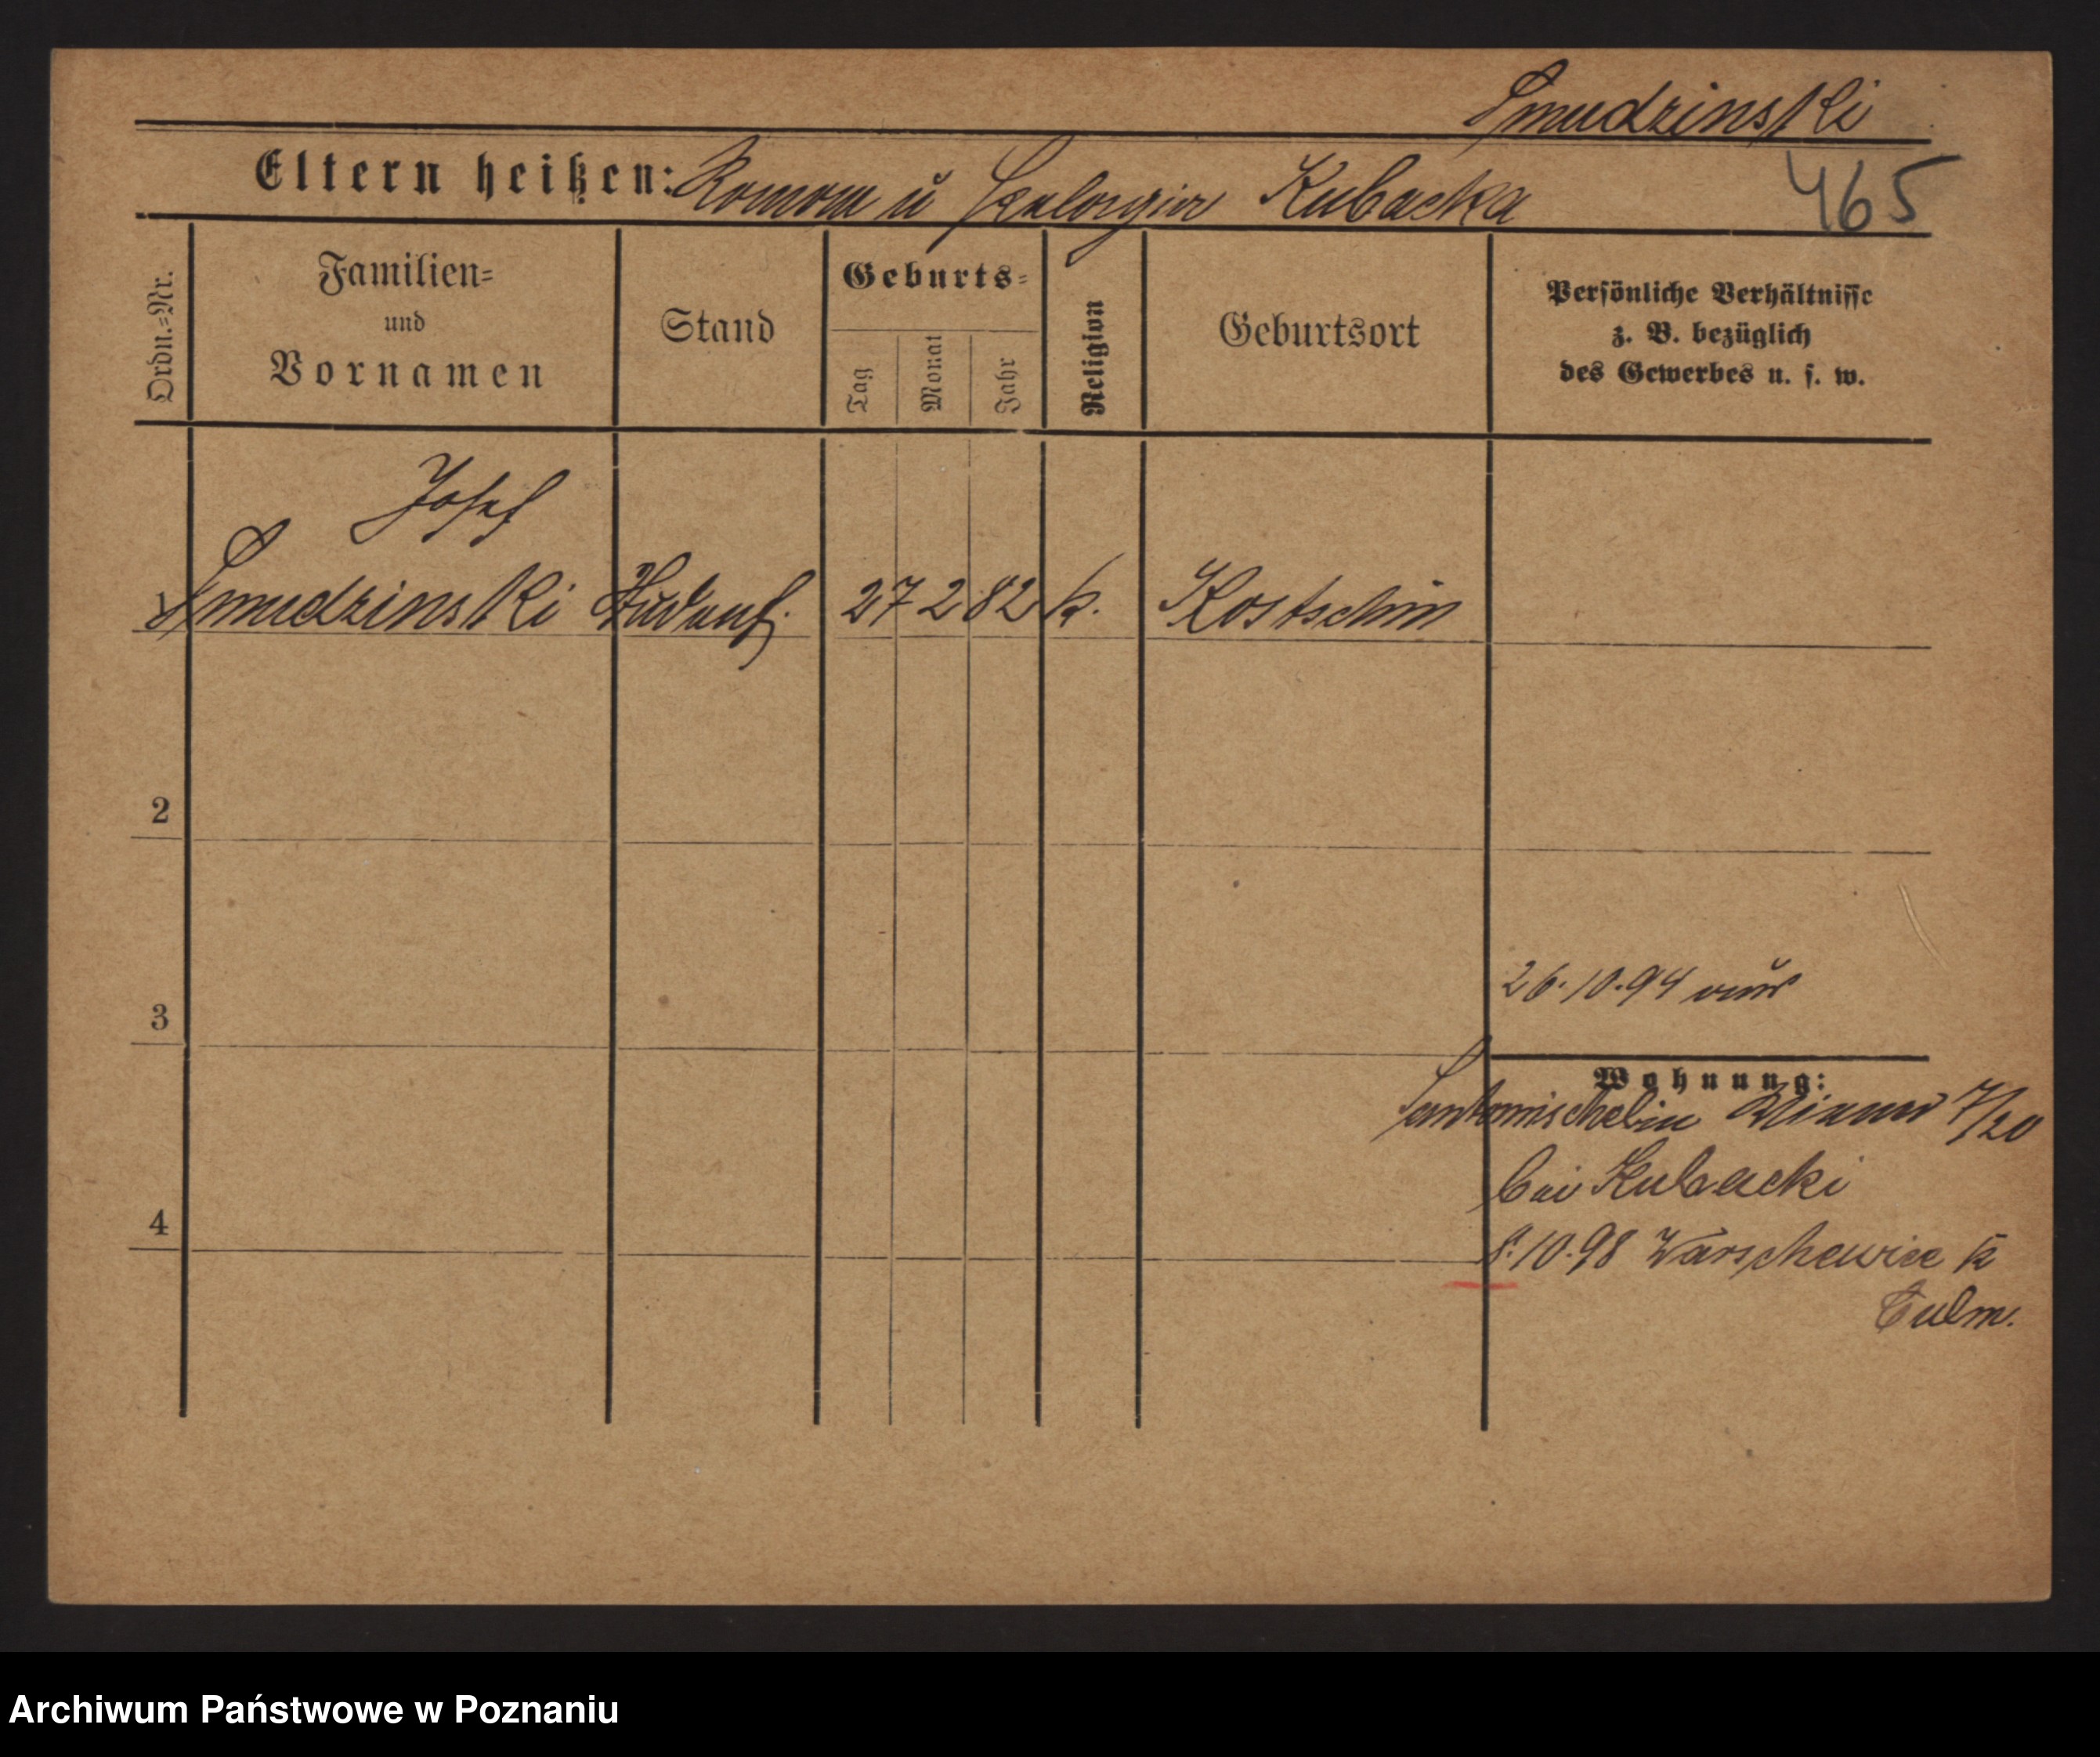 Smudzinski
Eltern heißen: Roman u Kubacka
465
Ordn.=Nr.
Familien=
und
Vornamen
Stand
Geburts=
Tag
Monat
Jahr
Religion
Geburtsort
Persönliche Verhältnisse
z. B. bezüglich
des Gewerbes u. s. w.
Josef
1 Smudzinski 27 2 82 k. Kostschin
2
3
26.10.94
Wohnung:
7/20
bei Kubacki
8.10.98 Warschewice K
Culm.
4
Archiwum Państwowe w Poznaniu